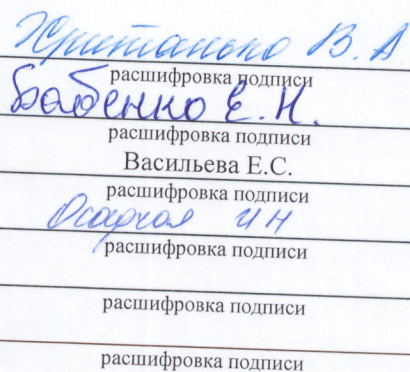 Христанько В. А
расшифровка подписи
Бабенко Е. Н.
расшифровка подписи
Васильева Е.С.
расшифровка подписи
Осадчая И Н
расшифровка подписи
расшифровка подписи
расшифровка подписи